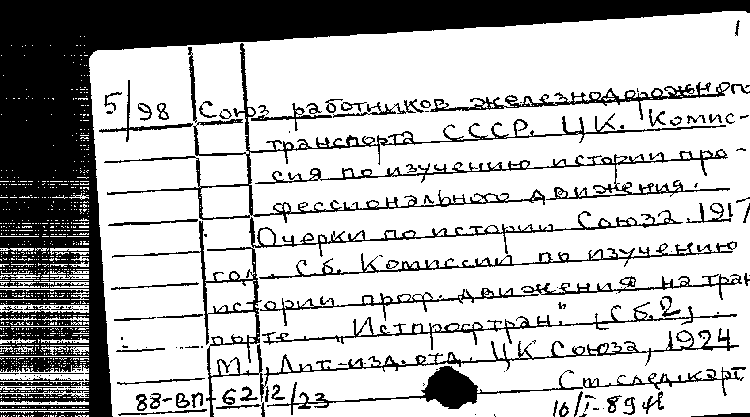 1
5/98 Союз работников железнодорожного
транспорта СССР. ЦК. Комис-
сия по изучению истории про-
фессионального движения.
Очерки по истории Союза. 1917
год. Сб. Комиссии по изучению
истории проф. движения на тран
порте „Истпрофтран". [Сб. 2].
М., Лит.-изд. отд. ЦК Союза, 1924
См. след. карт.
88-ВП-62 12/23